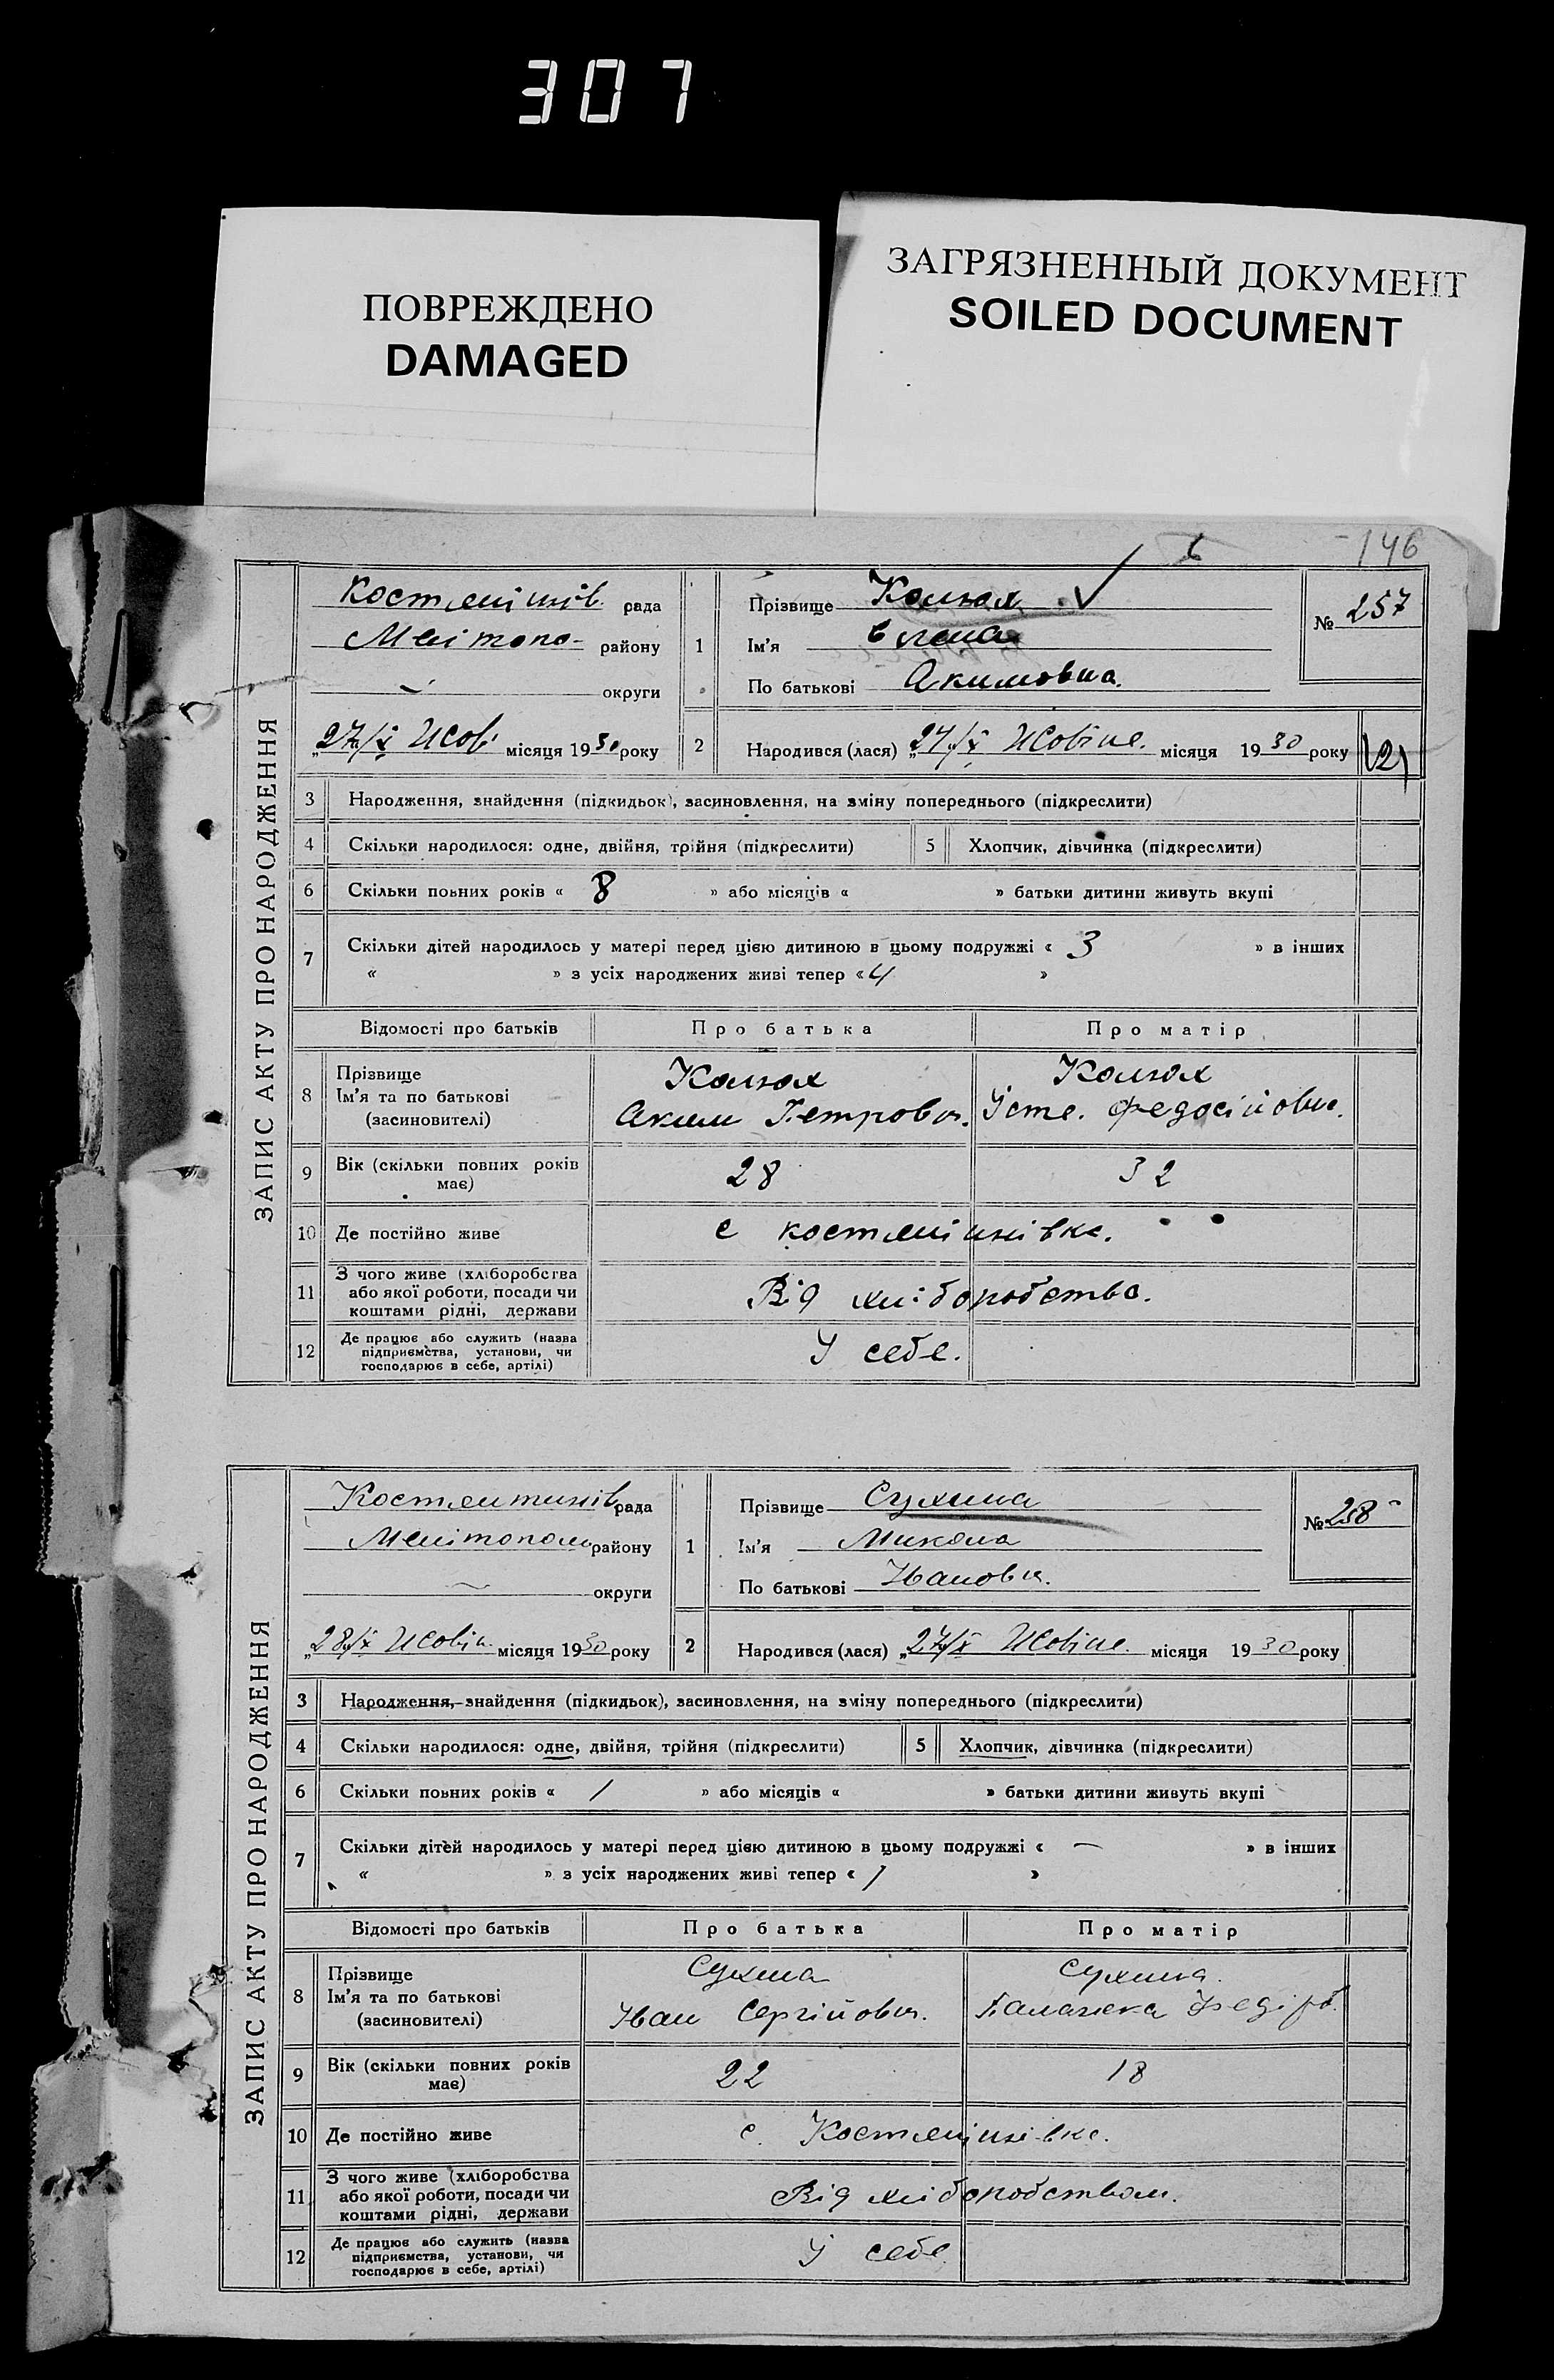 307
ПОВРЕЖДЕНО
DAMAGED
ЗАГРЯЗНЕННЫЙ ДОКУМЕНТ
SOILED DOCUMENT
146
ЗАПИС АКТУ ПРО НАРОДЖЕННЯ
рада
району
округи
„27/X місяця 1930 року
1
Прізвище
Ім'я
По батькові Акимовна.
№ 257
2
Народився (лася) „27/X місяця 1930 року
3 Народження, знайдення (підкидьок), засиновлення, на зміну попереднього (підкреслити)
4 Скільки народилося: одне, двійня, трійня (підкреслити)
5 Хлопчик, дівчинка (підкреслити)
6 Скільки повних років « 8 » або місяців « » батьки дитини живуть вкупі
7 Скільки дітей народилось у матері перед цією дитиною в цьому подружжі « 3 » в інших
« » з усіх народжених живі тепер « 4 »
Відомості про батьків Про батька Про матір
8 Прізвище
Ім'я та по батькові
(засновителі)
Аким Петрович.
9 Вік (скільки повних років має) 28 32
10 Де постійно живе
11 З чого живе (хліборобства
або якої роботи, посади чи
коштами рідні, держави
Від хліборобства.
12 Де працює або служить (назва
підприємства, установи, чи
господарює в себе, артілі)
У себе.
ЗАПИС АКТУ ПРО НАРОДЖЕННЯ
рада
району
округи
„28/X місяця 1930 року
1
Прізвище Сухина
Ім'я Микола
По батькові
№ 258
2
Народився (лася) „27/X місяця 1930 року
3 Народження, знайдення (підкидьок), засиновлення, на зміну попереднього (підкреслити)
4 Скільки народилося: одне, двійня, трійня (підкреслити)
5 Хлопчик, дівчинка (підкреслити)
6 Скільки повних років « 1 » або місяців « » батьки дитини живуть вкупі
7 Скільки дітей народилось у матері перед цією дитиною в цьому подружжі « — » в інших
« » з усіх народжених живі тепер « 1 »
Відомості про батьків Про батька Про матір
8 Прізвище
Ім'я та по батькові
(засновителі)
Сухина
Иван Сергійович.
Сухина.
9 Вік (скільки повних років має) 22 18
10 Де постійно живе
11 З чого живе (хліборобства
або якої роботи, посади чи
коштами рідні, держави
Від хліборобством.
12 Де працює або служить (назва
підприємства, установи, чи
господарює в себе, артілі)
У себе